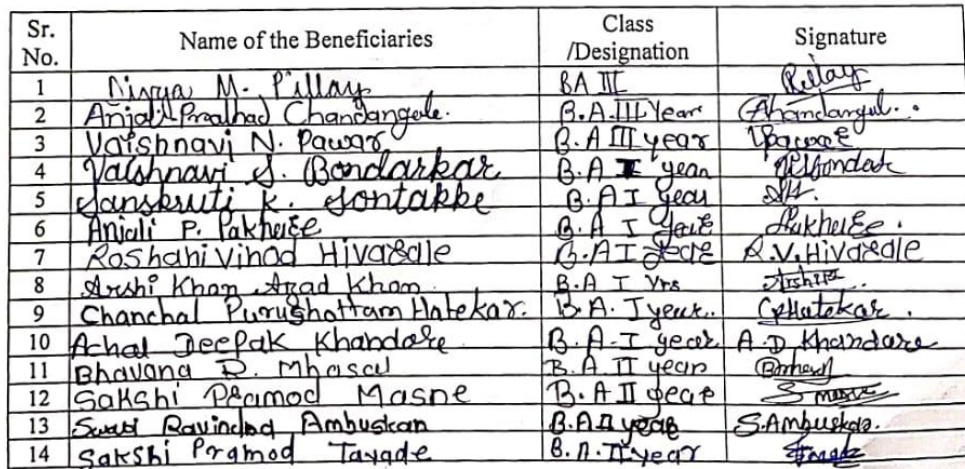 Sr. No. Name of the Beneficiaries Class /Designation Signature
1 Divya M. Pillay BA III Pillay
2 Anjali Pralhad Chandangole. B.A.III Year Chandangul..
3 Vaishnavi N. Pawar B.A III year
4 Vaishnavi S. Bondarkar B.A I year
5 Sanskruti K. Sontakke B.A I year
6 Anjali P. Pakhare B.A I year Pakhare.
7 Roshani Vinod Hivarale B.A I year R.V.Hivarale
8 Arshi Khan Azad Khan B.A I Yrs Arshi
9 Chanchal Purushottam Hatekar. B.A. I year. CPHatekar.
10 Achal Deepak Khandare B.A.I year A.D Khandare
11 Bhavana D. Mhasal B.A II year
12 Sakshi Pramod Masne B.A II year
13 Swati Ravindra Ambuskar B.A II year S.Ambuskar.
14 Sakshi Pramod Tayade B.A.II year